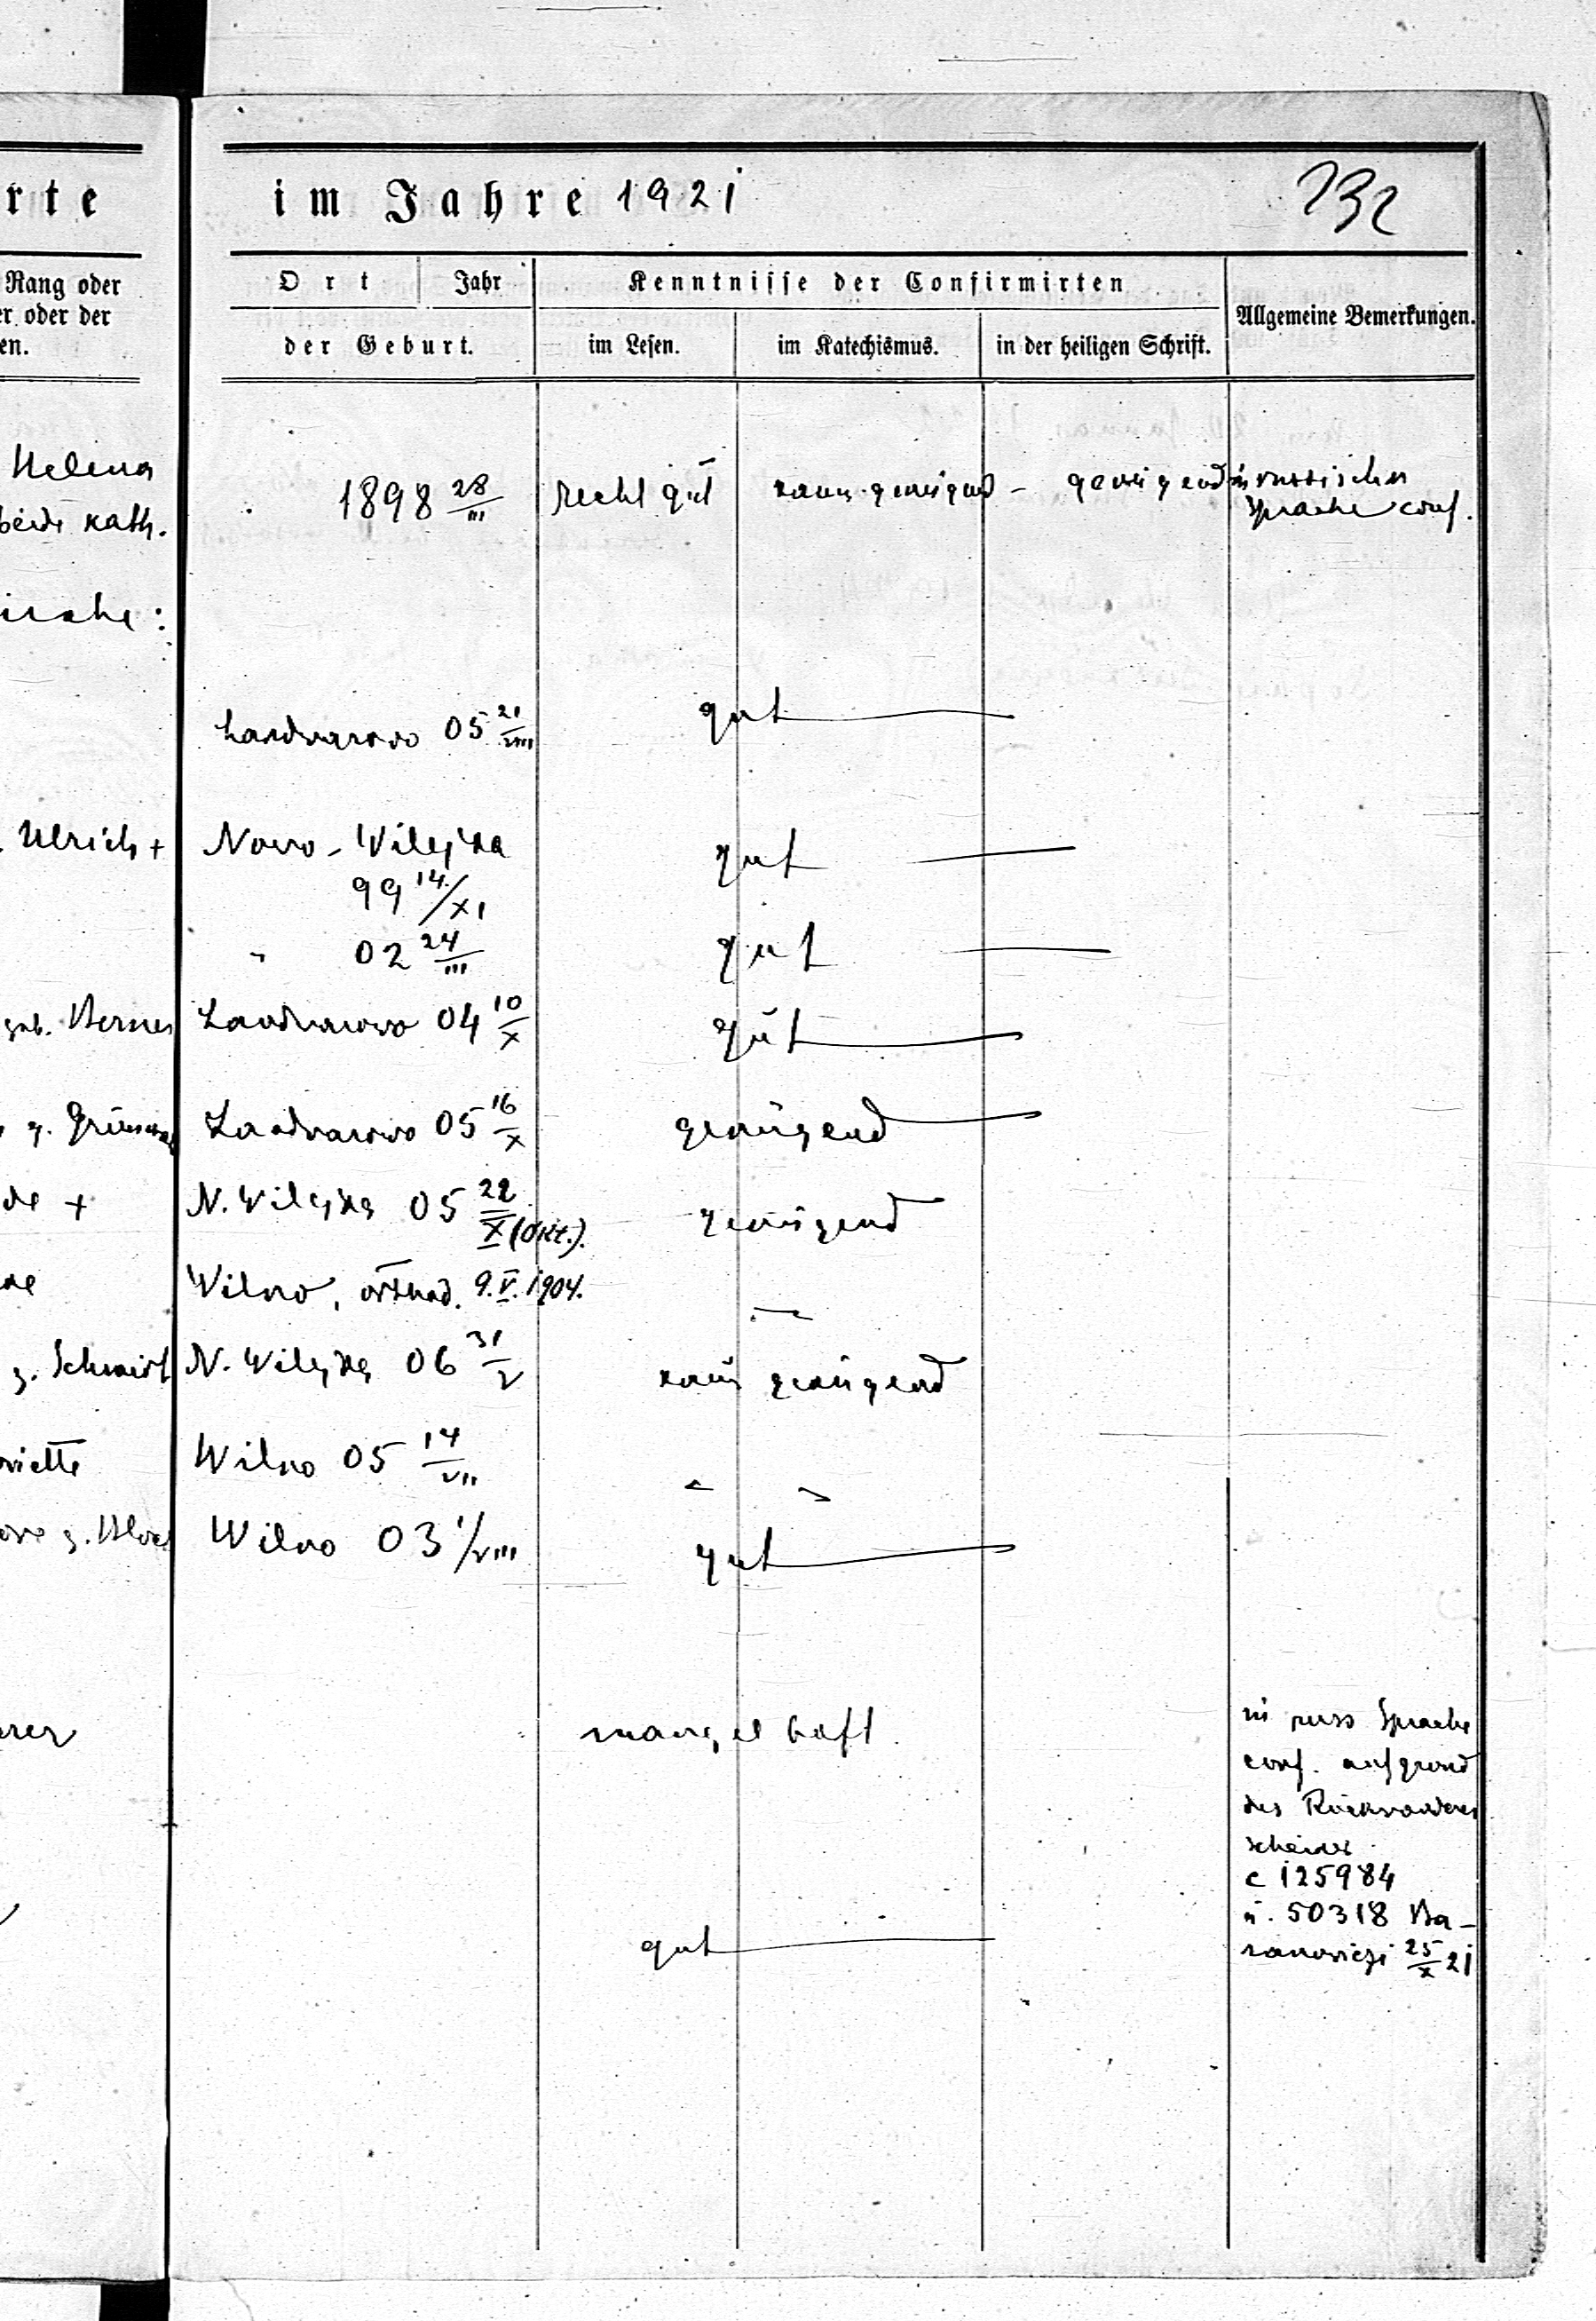 rte im Jahre 1921 232
Rang oder
er oder der
en.
Ort Jahr
der Geburt.
Kenntnisse der Confirmirten
im Lesen. im Katechismus. in der heiligen Schrift.
Allgemeine Bemerkungen.
Helena
beide kath. 1898 28/III recht gut kaum genügend - genügend in russischer
Sprache conf.
irche:
Landwarowo 05 21/VIII gut
Ulrich + Nowo-Wilejka gut
99 14/XI
" 02 24/III gut
geb. Berner Landwarowo 04 10/X gut
g. Landwarowo 05 16/X genügend
de + N. Wilejka 05 22/X (Okt.). genügend
ke Wilno, 9.V.1904. —
g. Schmidt N. Wilejka 06 31/V kaum genügend
riette Wilno 05 14/VII " "
g. Wilno 03 1/VIII gut
rer mangelhaft
in russ Sprache
conf. aufgrund
des Rückwanderer
scheines
c 125984
u. 50318 Ba-
ranowiczi 25/X 21
gut